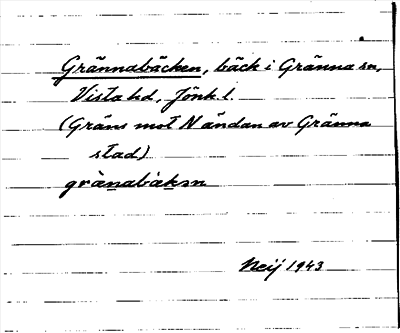 Grännabäcken, bäck i Gränna sn,
Vista hd, Jönk. l.
(Gräns mot N ändan av Gränna
stad)
grànabàkən
Neij 1943